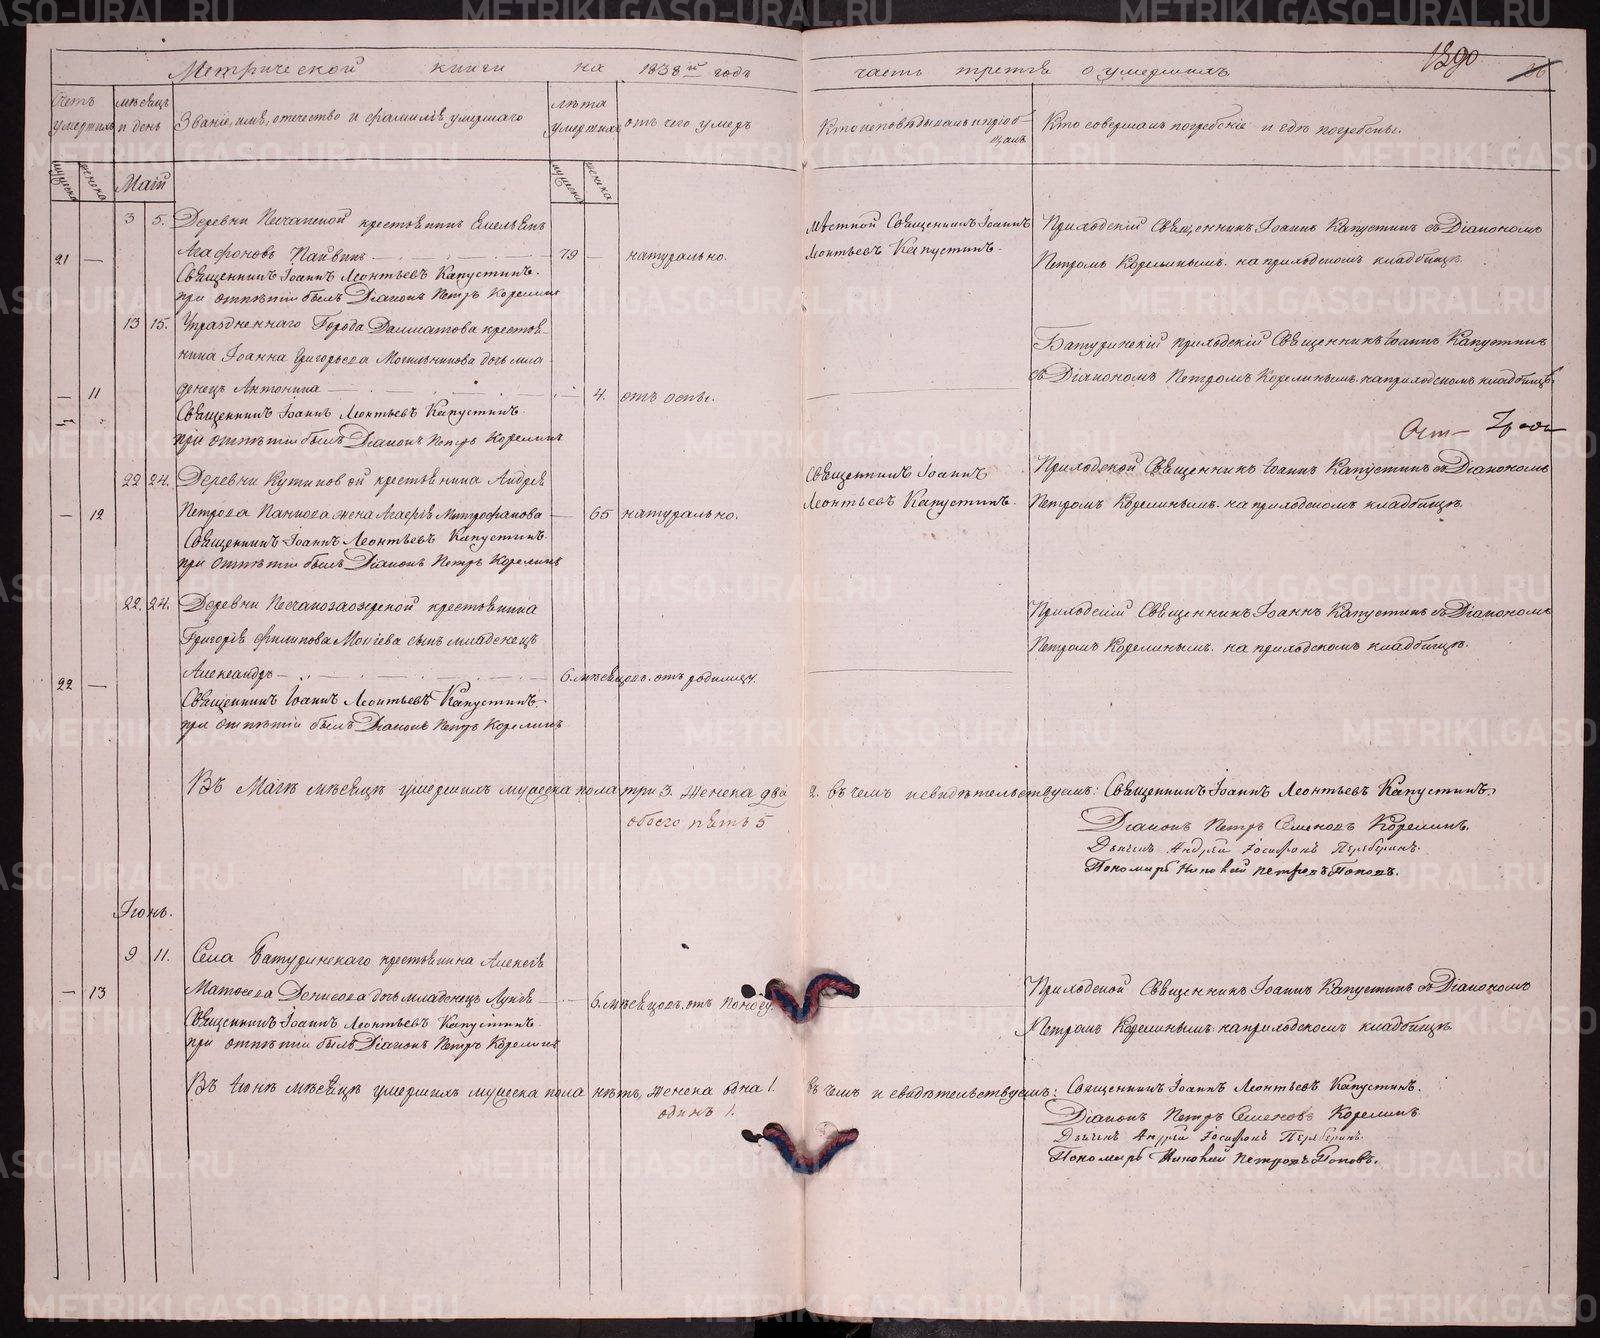 Метрической книги на 1838й годъ часть третія о умершихъ
1290
Счетъ умершихъ
мѣсяцъ и день
Званіе, имя, отечество и фамилія умершаго
лѣта умершихъ
отъ чего умеръ
Кто исповѣдывалъ и пріобщалъ
Кто совершалъ погребеніе и гдѣ погребены.
мужеска
женска
Маій
мужеска
женска
3 5. Деревни Песчанской крестьянинъ Емельянъ
Агафоновъ Пайвинъ
21 — 79 — натурально.
Священникъ Іоаннъ Леонтьевъ Капустинъ.
при отпѣтіи былъ Діаконъ Петръ Корелинъ
мѣстной Священникъ Іоаннъ
Леонтьевъ Капустинъ.
Приходскій Священникъ Іоаннъ Капустинъ съ Діакономъ
Петромъ Корелинымъ. на приходскомъ кладбищѣ.
13 15. Упраздненнаго Города Далматова крестья-
нина Іоанна Григорьева Могильникова дочь мла
денецъ Антонина
— 11 — 4. отъ оспы.
Священникъ Іоаннъ Леонтьевъ Капустинъ.
при отпѣтіи былъ Діаконъ Петръ Корелинъ
Батуринскій приходскій Священникъ Іоаннъ Капустинъ
съ Діакономъ Петромъ Корелинымъ. на приходскомъ кладбищѣ.
22 24. Деревни Кутиковой крестьянина Андрея
Петрова жена Агафія Митрофанова
— 12 — 65 натурально.
Священникъ Іоаннъ Леонтьевъ Капустинъ.
при отпѣтіи былъ Діаконъ Петръ Корелинъ
Священникъ Іоаннъ
Леонтьевъ Капустинъ.
Приходской Священникъ Іоаннъ Капустинъ съ Діакономъ
Петромъ Корелинымъ. на приходскомъ кладбищѣ.
22. 24. Деревни Песчанозаозерской крестьянина
Григорія Филипова Мокіева сынъ младенецъ
Александръ
22 — 6. мѣсяцовъ. отъ родимцу.
Священникъ Іоаннъ Леонтьевъ Капустинъ.
при отпѣтіи былъ Діаконъ Петръ Корелинъ
Приходскій Священникъ Іоаннъ Капустинъ съ Діакономъ
Петромъ Корелинымъ. на приходскомъ кладбищѣ.
Въ Маіѣ мѣсяцѣ умершихъ мужеска пола три 3. женска два 2. въ чемъ и свидѣтельствуемъ: Священникъ Іоаннъ Леонтьевъ Капустинъ.
обоего пять 5
Діаконъ Петръ Семеновъ Корелинъ.
Дьячекъ Андрей Іосифовъ
Пономарь Петровъ Поповъ.
Іюнь.
9 11. Села Батуринскаго крестьянина Алексія
Матѳеева Денисова дочь младенецъ Лукія
— 13 6. мѣсяцовъ. отъ поносу.
Священникъ Іоаннъ Леонтьевъ Капустинъ
при отпѣтіи былъ Діаконъ Петръ Корелинъ
Приходской Священникъ Іоаннъ Капустинъ съ Діакономъ
Петромъ Корелинымъ на приходскомъ кладбищѣ.
Въ Іюнѣ мѣсяцѣ умершихъ мужеска пола нѣтъ, женска одна 1. въ чемъ и свидѣтельствуемъ: Священникъ Іоаннъ Леонтьевъ Капустинъ.
одинъ 1.
Діаконъ Петръ Семеновъ Корелинъ
Дьячекъ Андрей Іосифовъ
Пономарь Петровъ Поповъ.
METRIKI.GASO-URAL.RU